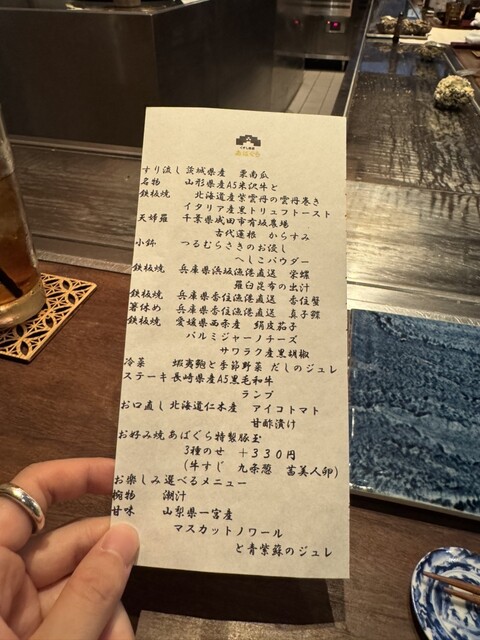 あばぐら
すり流し 茨城県産 栗南瓜
名物 山形県産A5米沢牛と
鉄板焼 北海道産紫雲丹の雲丹巻き
イタリア産黒トリュフトースト
天婦羅 千葉県成田市有坂農場
古代蓮根 からすみ
小鉢 つるむらさきのお浸し
へしこパウダー
鉄板焼 兵庫県浜坂漁港直送 栄螺
羅臼昆布の出汁
鉄板焼 兵庫県香住漁港直送 香住蟹
箸休め 兵庫県香住漁港直送 真子鰈
鉄板焼 愛媛県西条産 絹皮茄子
パルミジャーノチーズ
サワラク産黒胡椒
冷菜 蝦夷鮑と季節野菜 だしのジュレ
ステーキ 長崎県産A5黒毛和牛
ランプ
お口直し 北海道仁木産 アイコトマト
甘酢漬け
お好み焼 あばぐら特製豚玉
3種のせ +330円
(牛すじ 九条葱 茜美人卵)
お楽しみ 選べるメニュー
椀物 潮汁
甘味 山梨県一宮産
マスカットノワール
と青紫蘇のジュレ